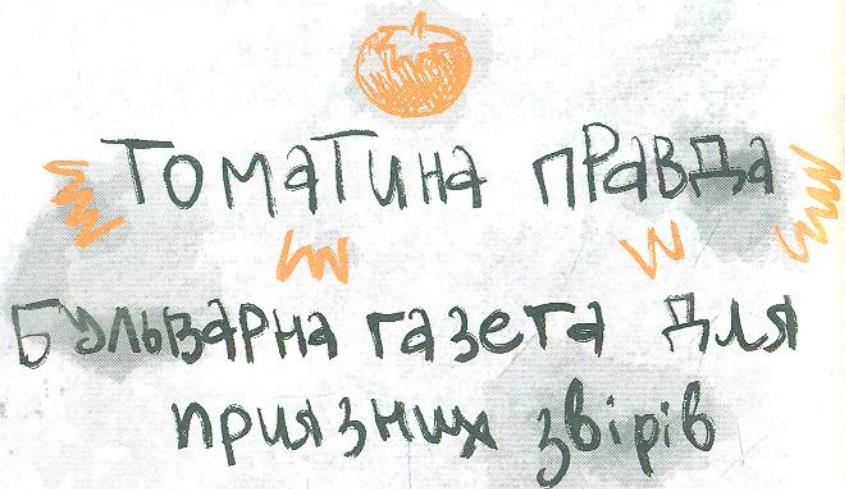 Томатина правда
Бульварна газета для
приязних звірів